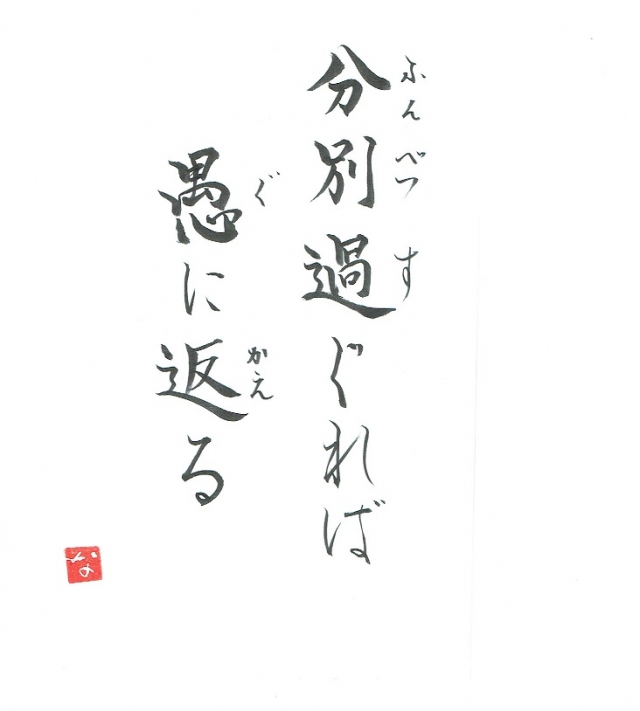 分別過ぐれば
ふんべつ す
愚に返る
ぐ かえ
な